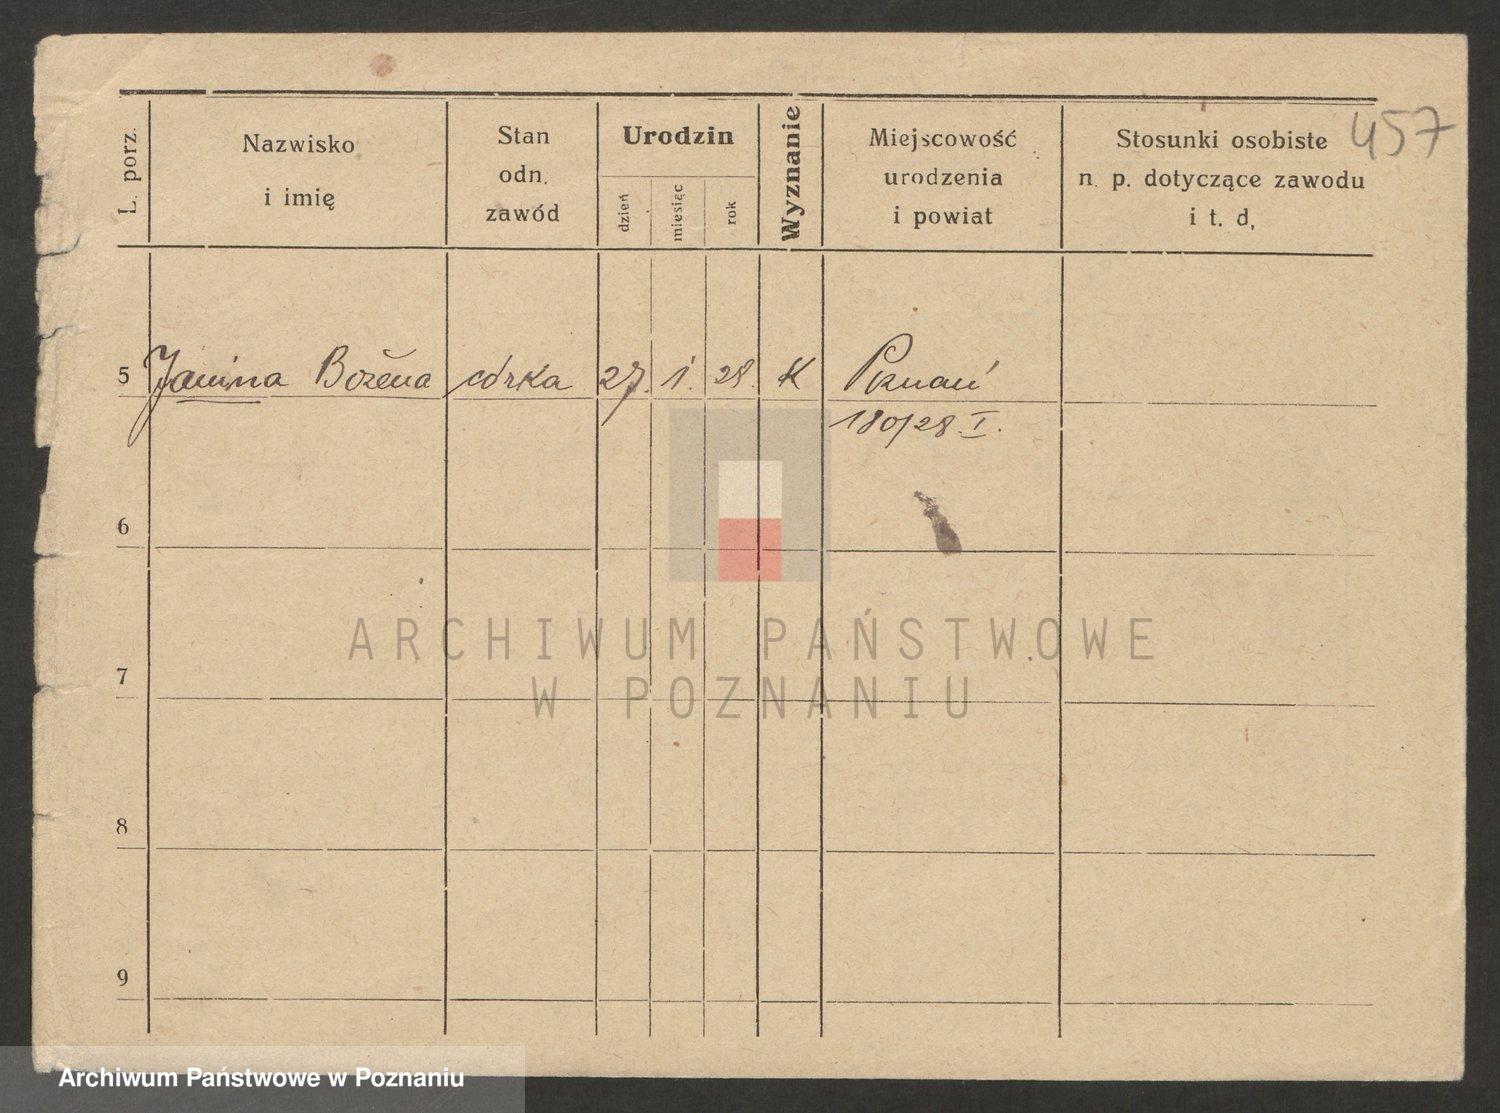 457
L. porz.
Nazwisko
i imię
Stan
odn.
zawód
Urodzin
dzień
miesiąc
rok
Wyznanie
Miejscowość
urodzenia
i powiat
Stosunki osobiste
n. p. dotyczące zawodu
i t. d,
5 Janina Bożena córka 27. 1. 28. K Poznań
180/28 I.
6
7
8
9
ARCHIWUM PAŃSTWOWE
W POZNANIU
Archiwum Państwowe w Poznaniu